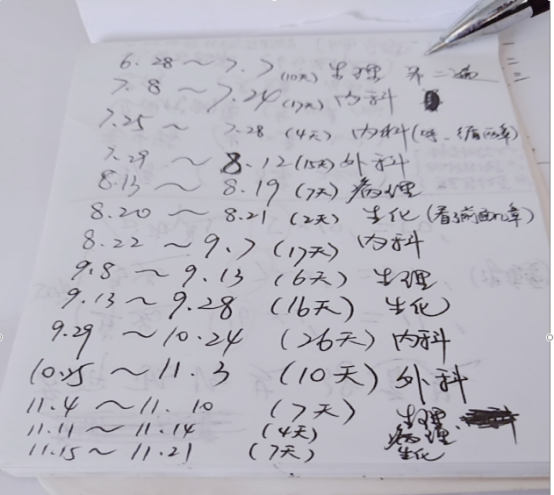 6.28～7.7 (10天) 生理 第二遍
7.8～7.24 (17天) 内科
7.25～7.28 (4天) 内科(呼、循两章)
7.29～8.12 (15天) 外科
8.13～8.19 (7天) 病理
8.20～8.21 (2天) 生化 (看了前面几章)
8.22～9.7 (17天) 内科
9.8～9.13 (6天) 生理
9.13～9.28 (16天) 生化
9.29～10.24 (26天) 内科
10.25～11.3 (10天) 外科
11.4～11.10 (7天) 生理
11.11～11.14 (4天) 病理
11.15～11.21 (7天) 生化